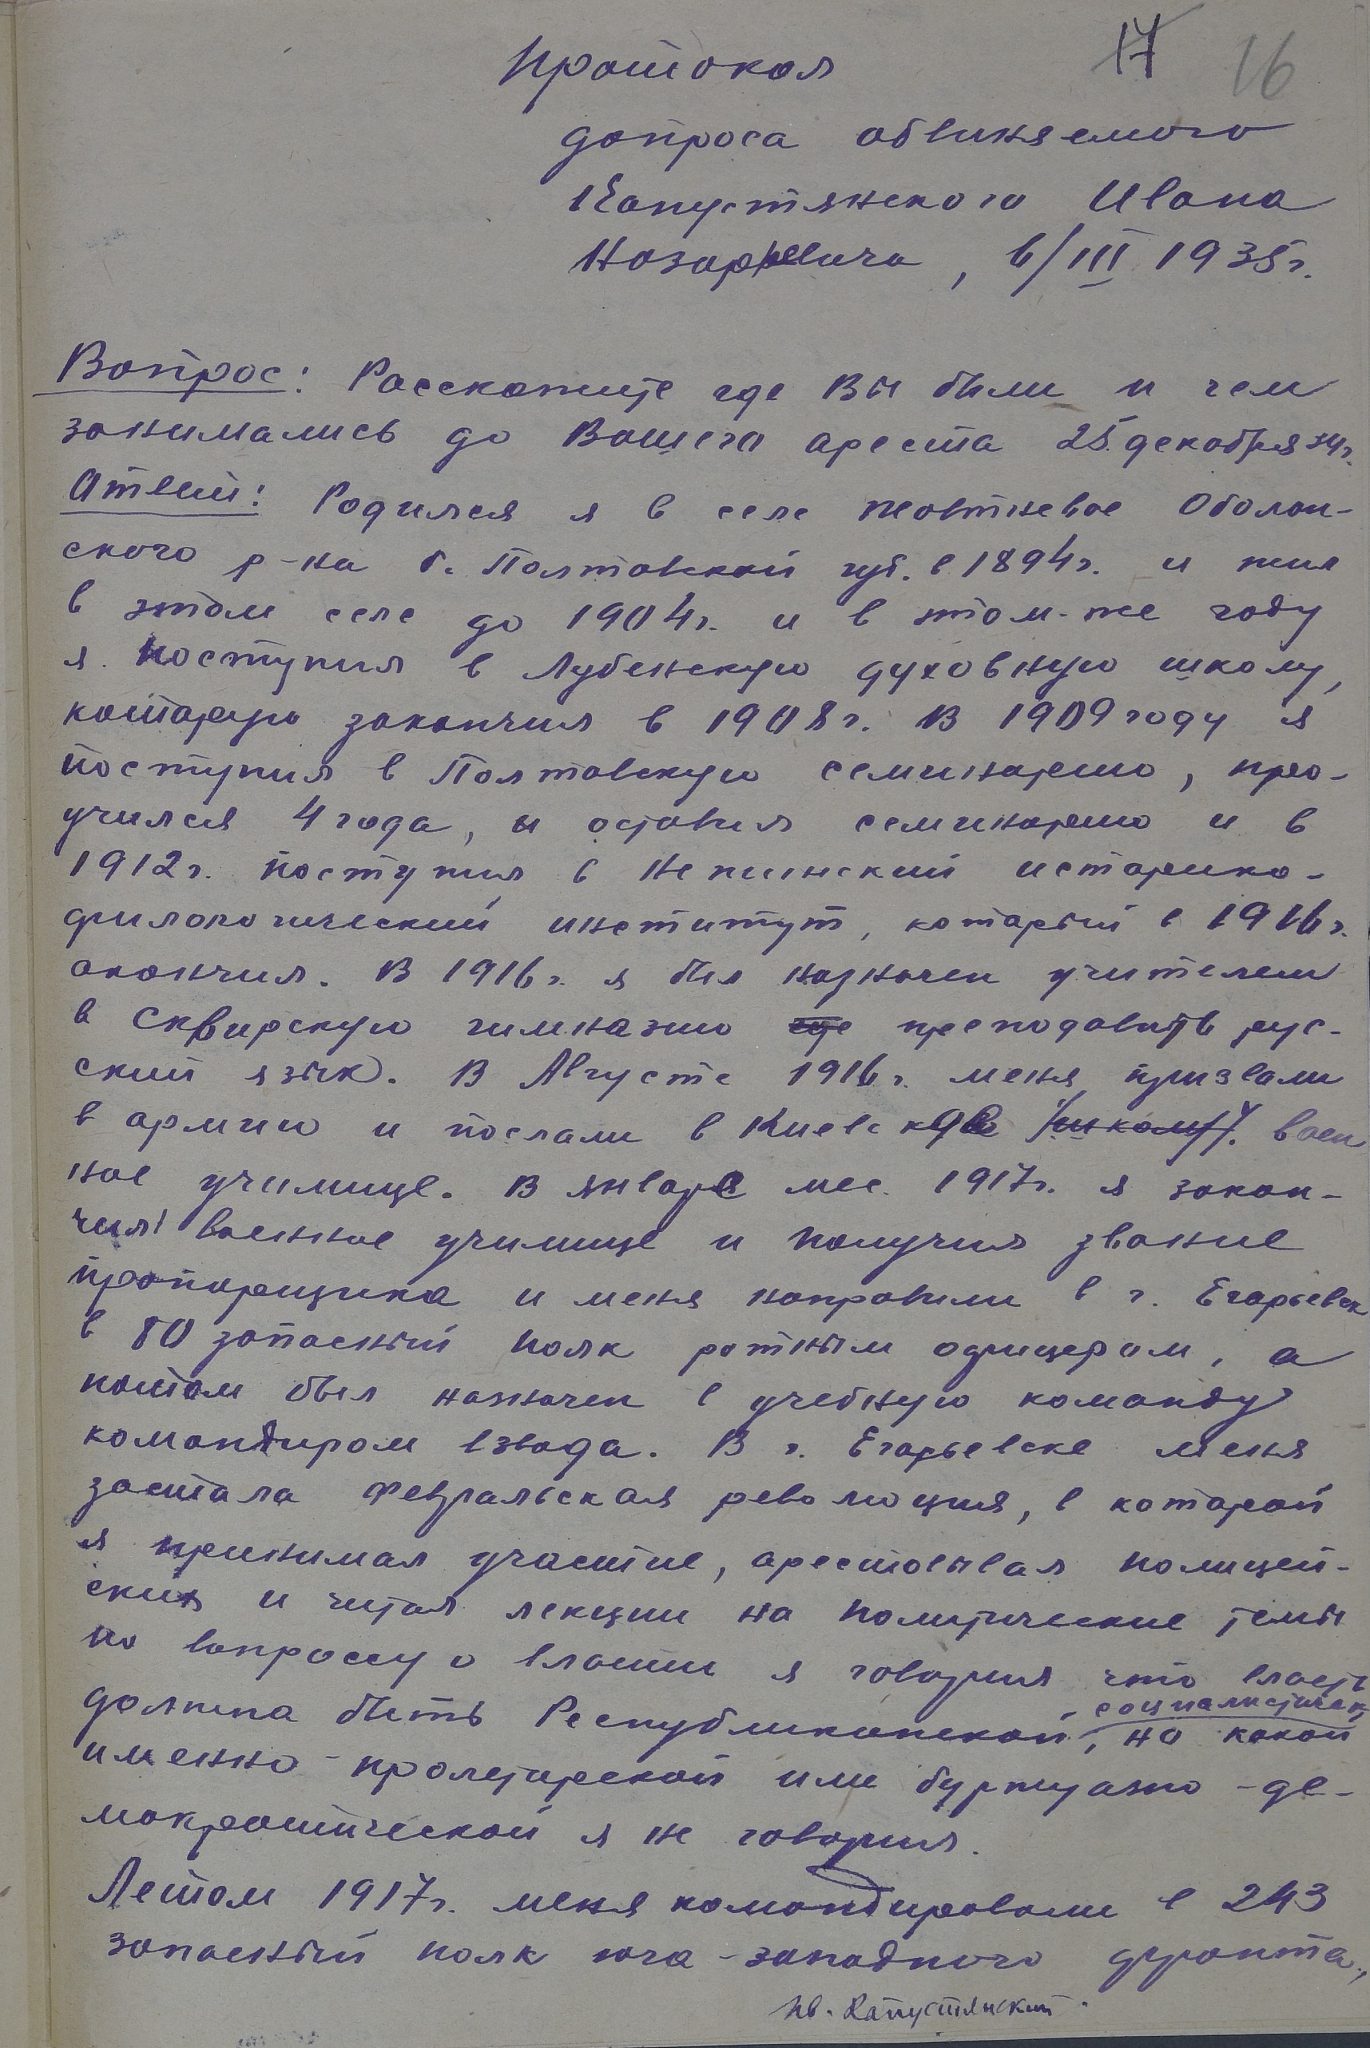 17 16
Протокол
допроса обвиняемого
Капустянского Ивана
Назарьевича, 6/III 1935г.
Вопрос: Расскажите где Вы были и чем
занимались до Вашего ареста 25 декабря 34г.
Ответ: Родился я в селе Жовтневое Оболон-
ского р-на б. Полтавской губ. в 1894г. и жил
в этом селе до 1904г. и в том-же году
я поступил в Лубенскую духовную школу,
которую закончил в 1908г. В 1909 году я
поступил в Полтавскую семинарию, про-
учился 4 года, и оставил семинарию и в
1912г. поступил в Нежинский историко-
филологический институт, который в 1916г.
окончил. В 1916г. я был назначен учителем
в Сквирскую гимназию где преподавать рус-
ский язык. В Августе 1916г. меня призвали
в армию и послали в Киевское школу. воен
ное училище. В январе мес. 1917г. я закон-
чил военное училище и получил звание
прапорщика и меня направили в г. Егорьевск
в 80 запасный полк ротным офицером, а
потом был назначен в учебную команду
командиром взвода. В г. Егорьевске меня
застала февральская революция, в которой
я принимал участие, арестовывал полицей-
ских и читал лекции на политические темы
по вопросу о власти я говорил что власть
должна быть Республиканской, социалистическ, но какой
именно - пролетарской или буржуазно-де-
мократической я не говорил.
Летом 1917г. меня командировали в 243
запасный полк юго-западного фронта,
Ив. Капустянский.